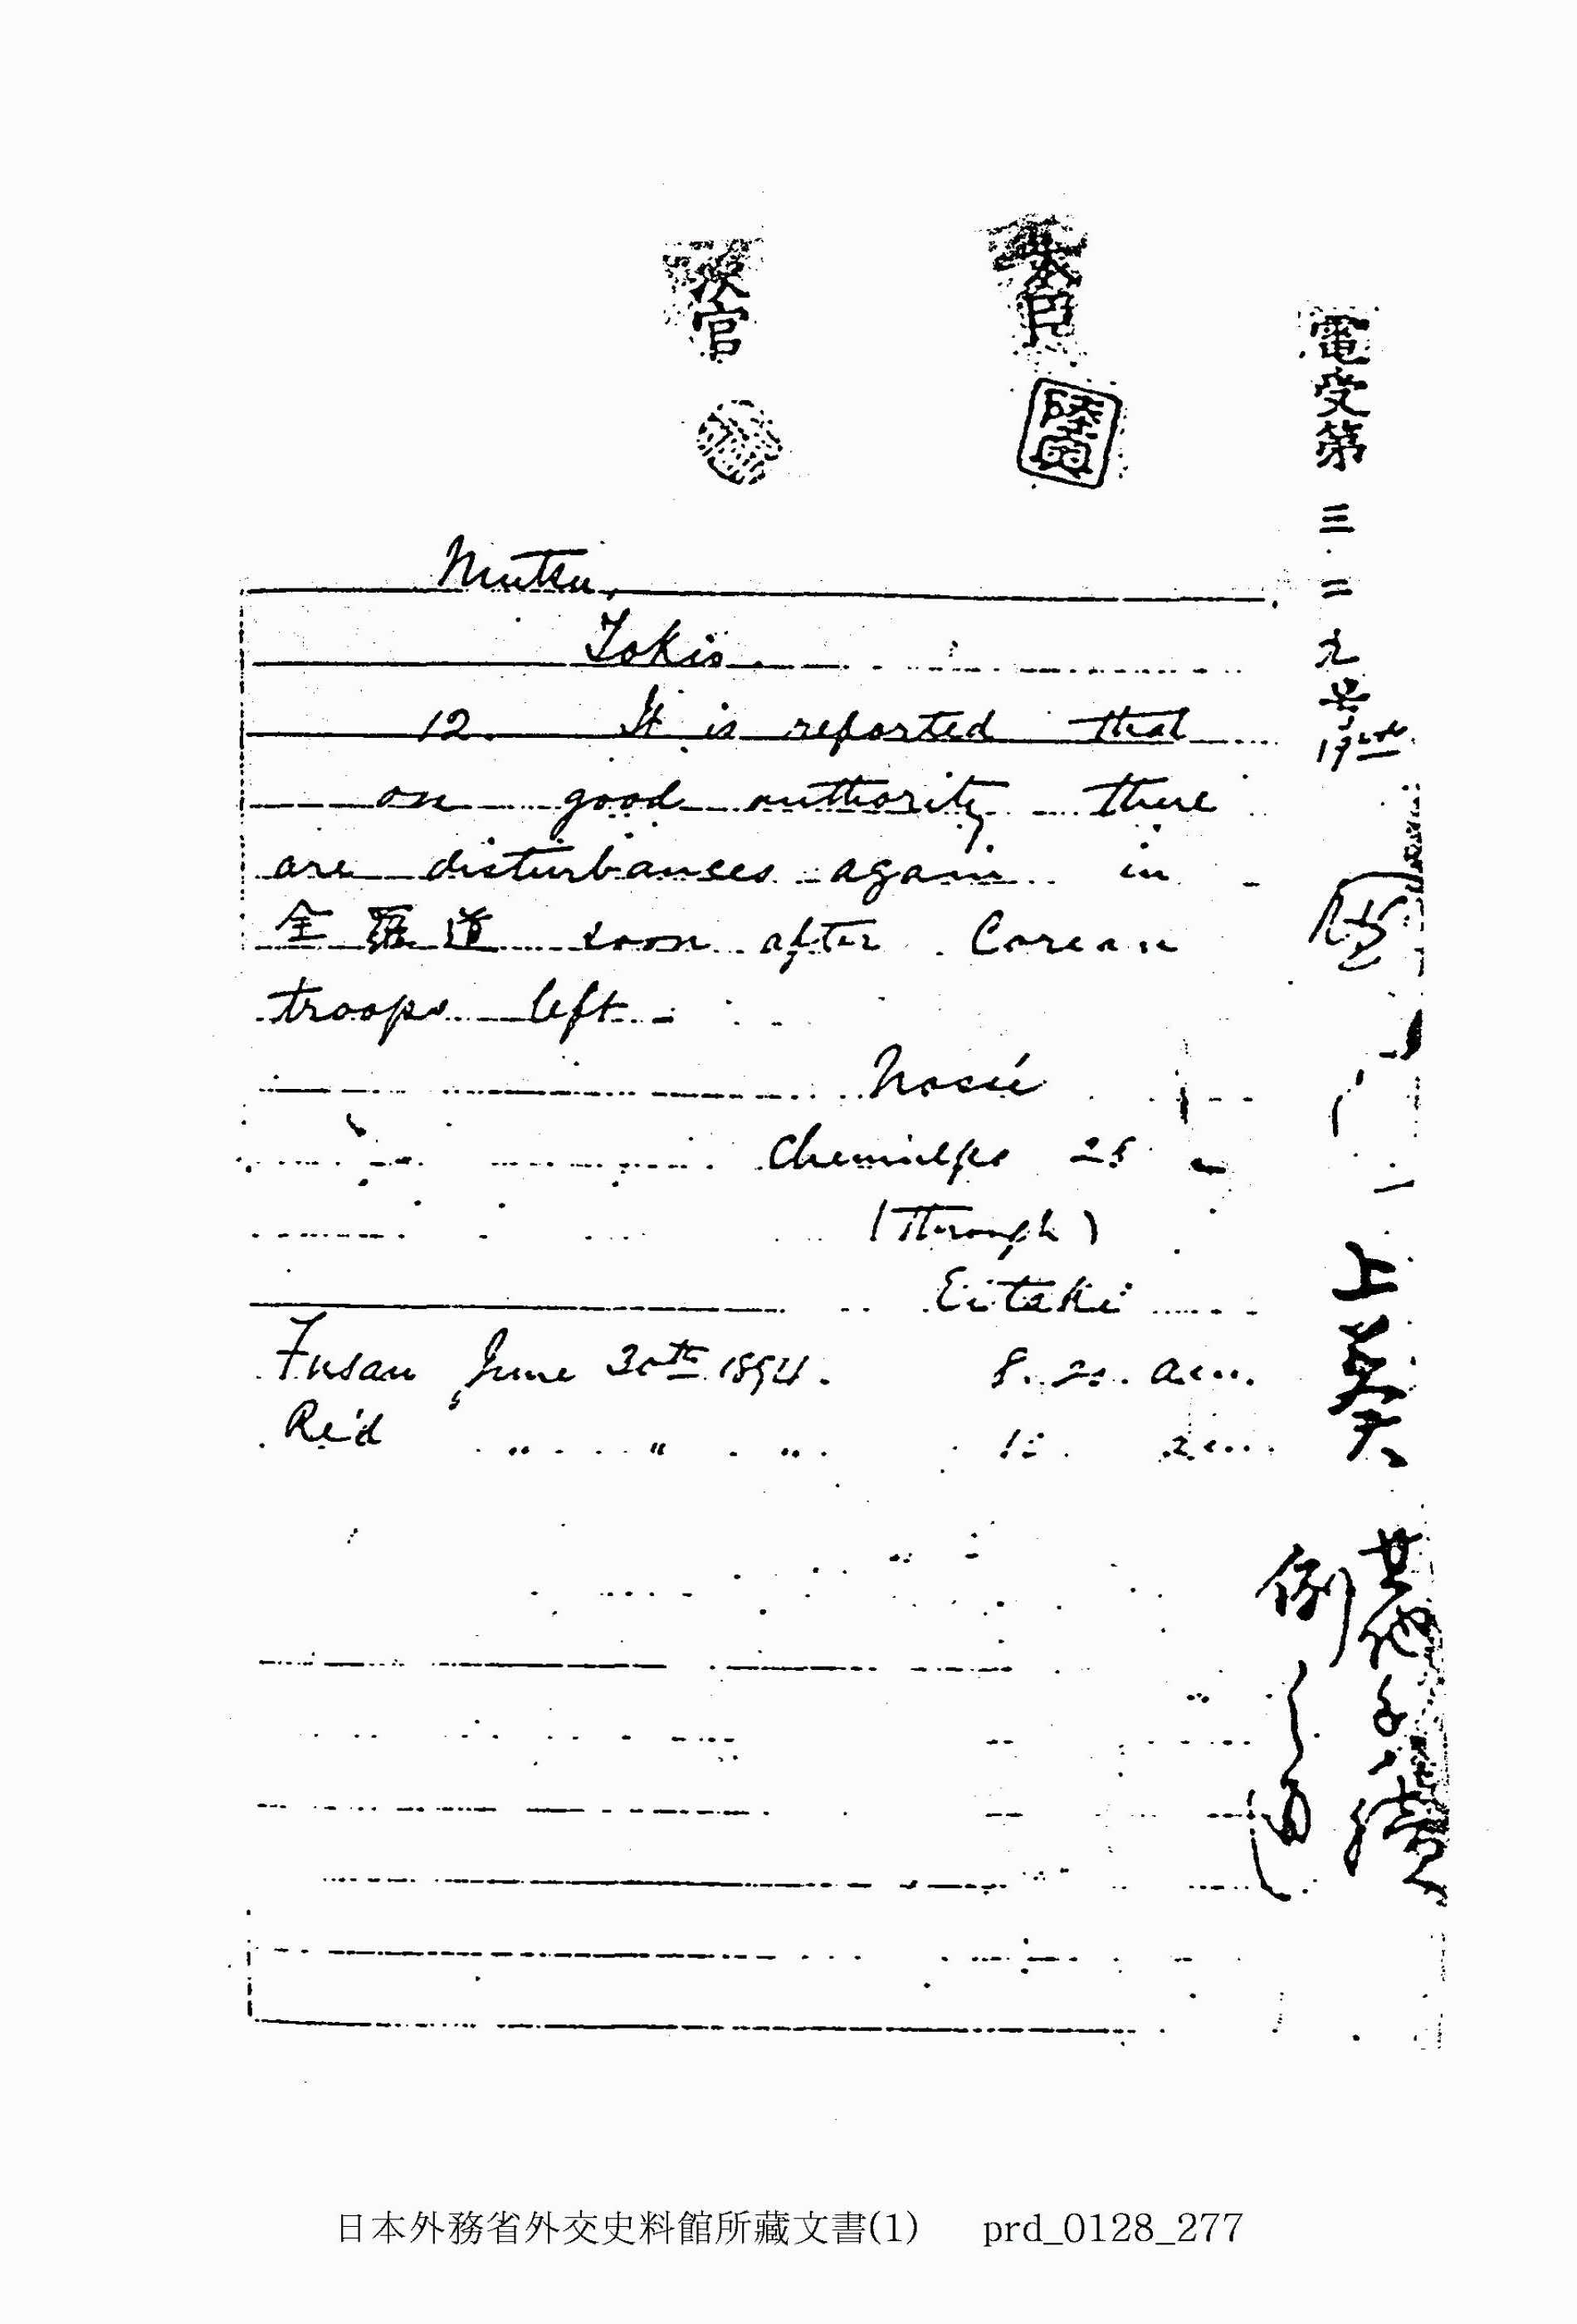 大臣
次官
陸奥
電受第三二九号
Mutsu,
Tokio.
12. It is reported that
on good authority there
are disturbances again in
全羅道 soon after Corean
troops left.
Nosé
Chemulpo 28
(Through)
Eitaki
Fusan, June 30th 1894. 8.20. a.m.
Re'd " " "
上奏
其他
例
日本外務省外交史料館所藏文書(1) prd_0128_277